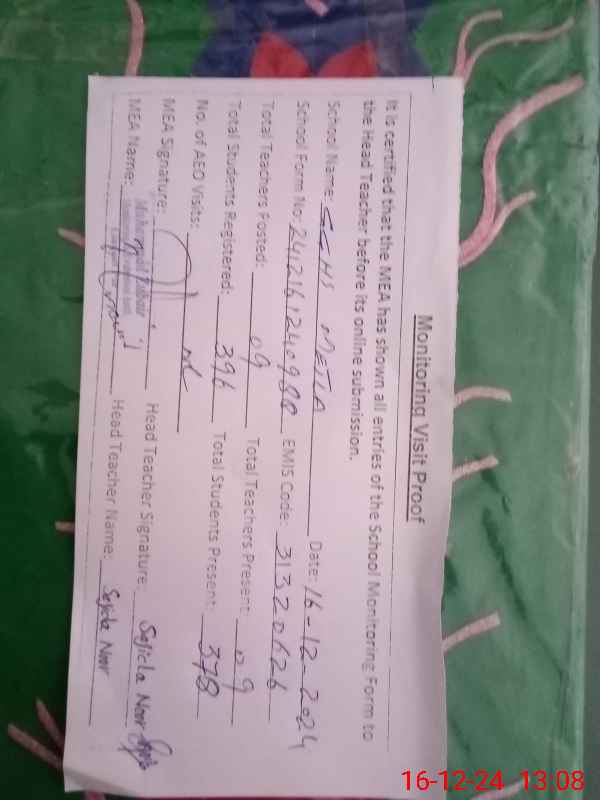 Monitoring Visit Proof
It is certified that the MEA has shown all entries of the School Monitoring Form to
the Head Teacher before its online submission.
School Name: GGHS Date: 16-12-2024
School Form No: EMIS Code: 31320626
Total Teachers Posted: 09 Total Teachers Present: 09
Total Students Registered: 396 Total Students Present: 378
No. of AEO Visits:
MEA Signature: Head Teacher Signature: Sajida Noor
MEA Name: Head Teacher Name: Sajida Noor
16-12-24 13:08